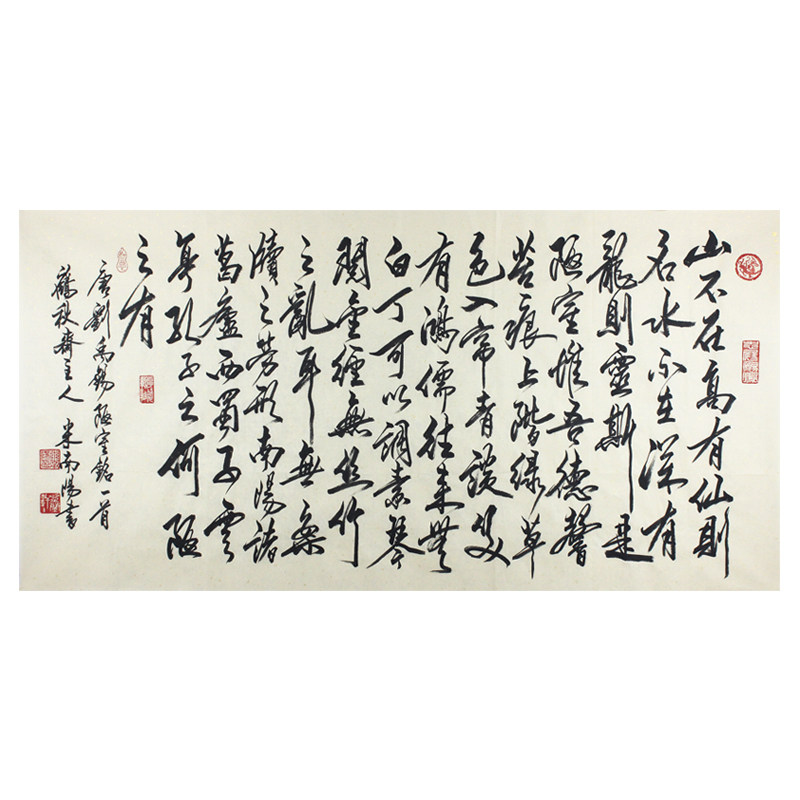 山不在高有仙則
名水不在深有
龍則靈斯是
陋室惟吾德馨
苔痕上階綠草
色入帘青談笑
有鴻儒往來無
白丁可以調素琴
閱金經無絲竹
之亂耳無案
牘之勞形南陽諸
葛廬西蜀子雲
亭孔子云何陋
之有
唐劉禹錫陋室銘一首
齋主人米南陽書